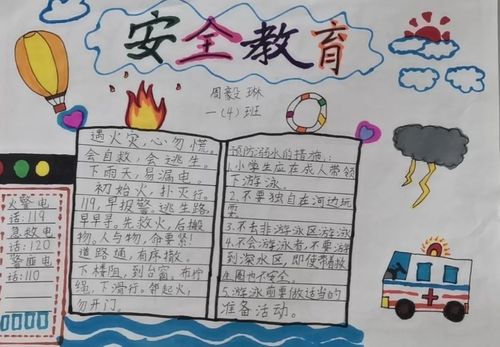 安全教育
周毅琳
一(4)班
遇火灾,心勿慌。
会自救,会逃生。
下雨天,易漏电。
初始火,扑灭行。
119,早报警,逃生路,
早早寻。先救火,后搬
物。人与物,命要紧!
道路通,有序撤。
下楼阻,到台窗。布拧
绳,下滑行。邻起火,
勿开门。
预防溺水的措施:
1.小学生应在成人带领
下游泳。
2.不要独自在河边玩
耍。
3.不去非游泳区游泳
4.不会游泳者,不要游
到深水区,即使带有救
生圈也不安全
5.游泳前要做适当的
准备活动。
火警电
话:119
急救电
话:120
警匪电
话:110